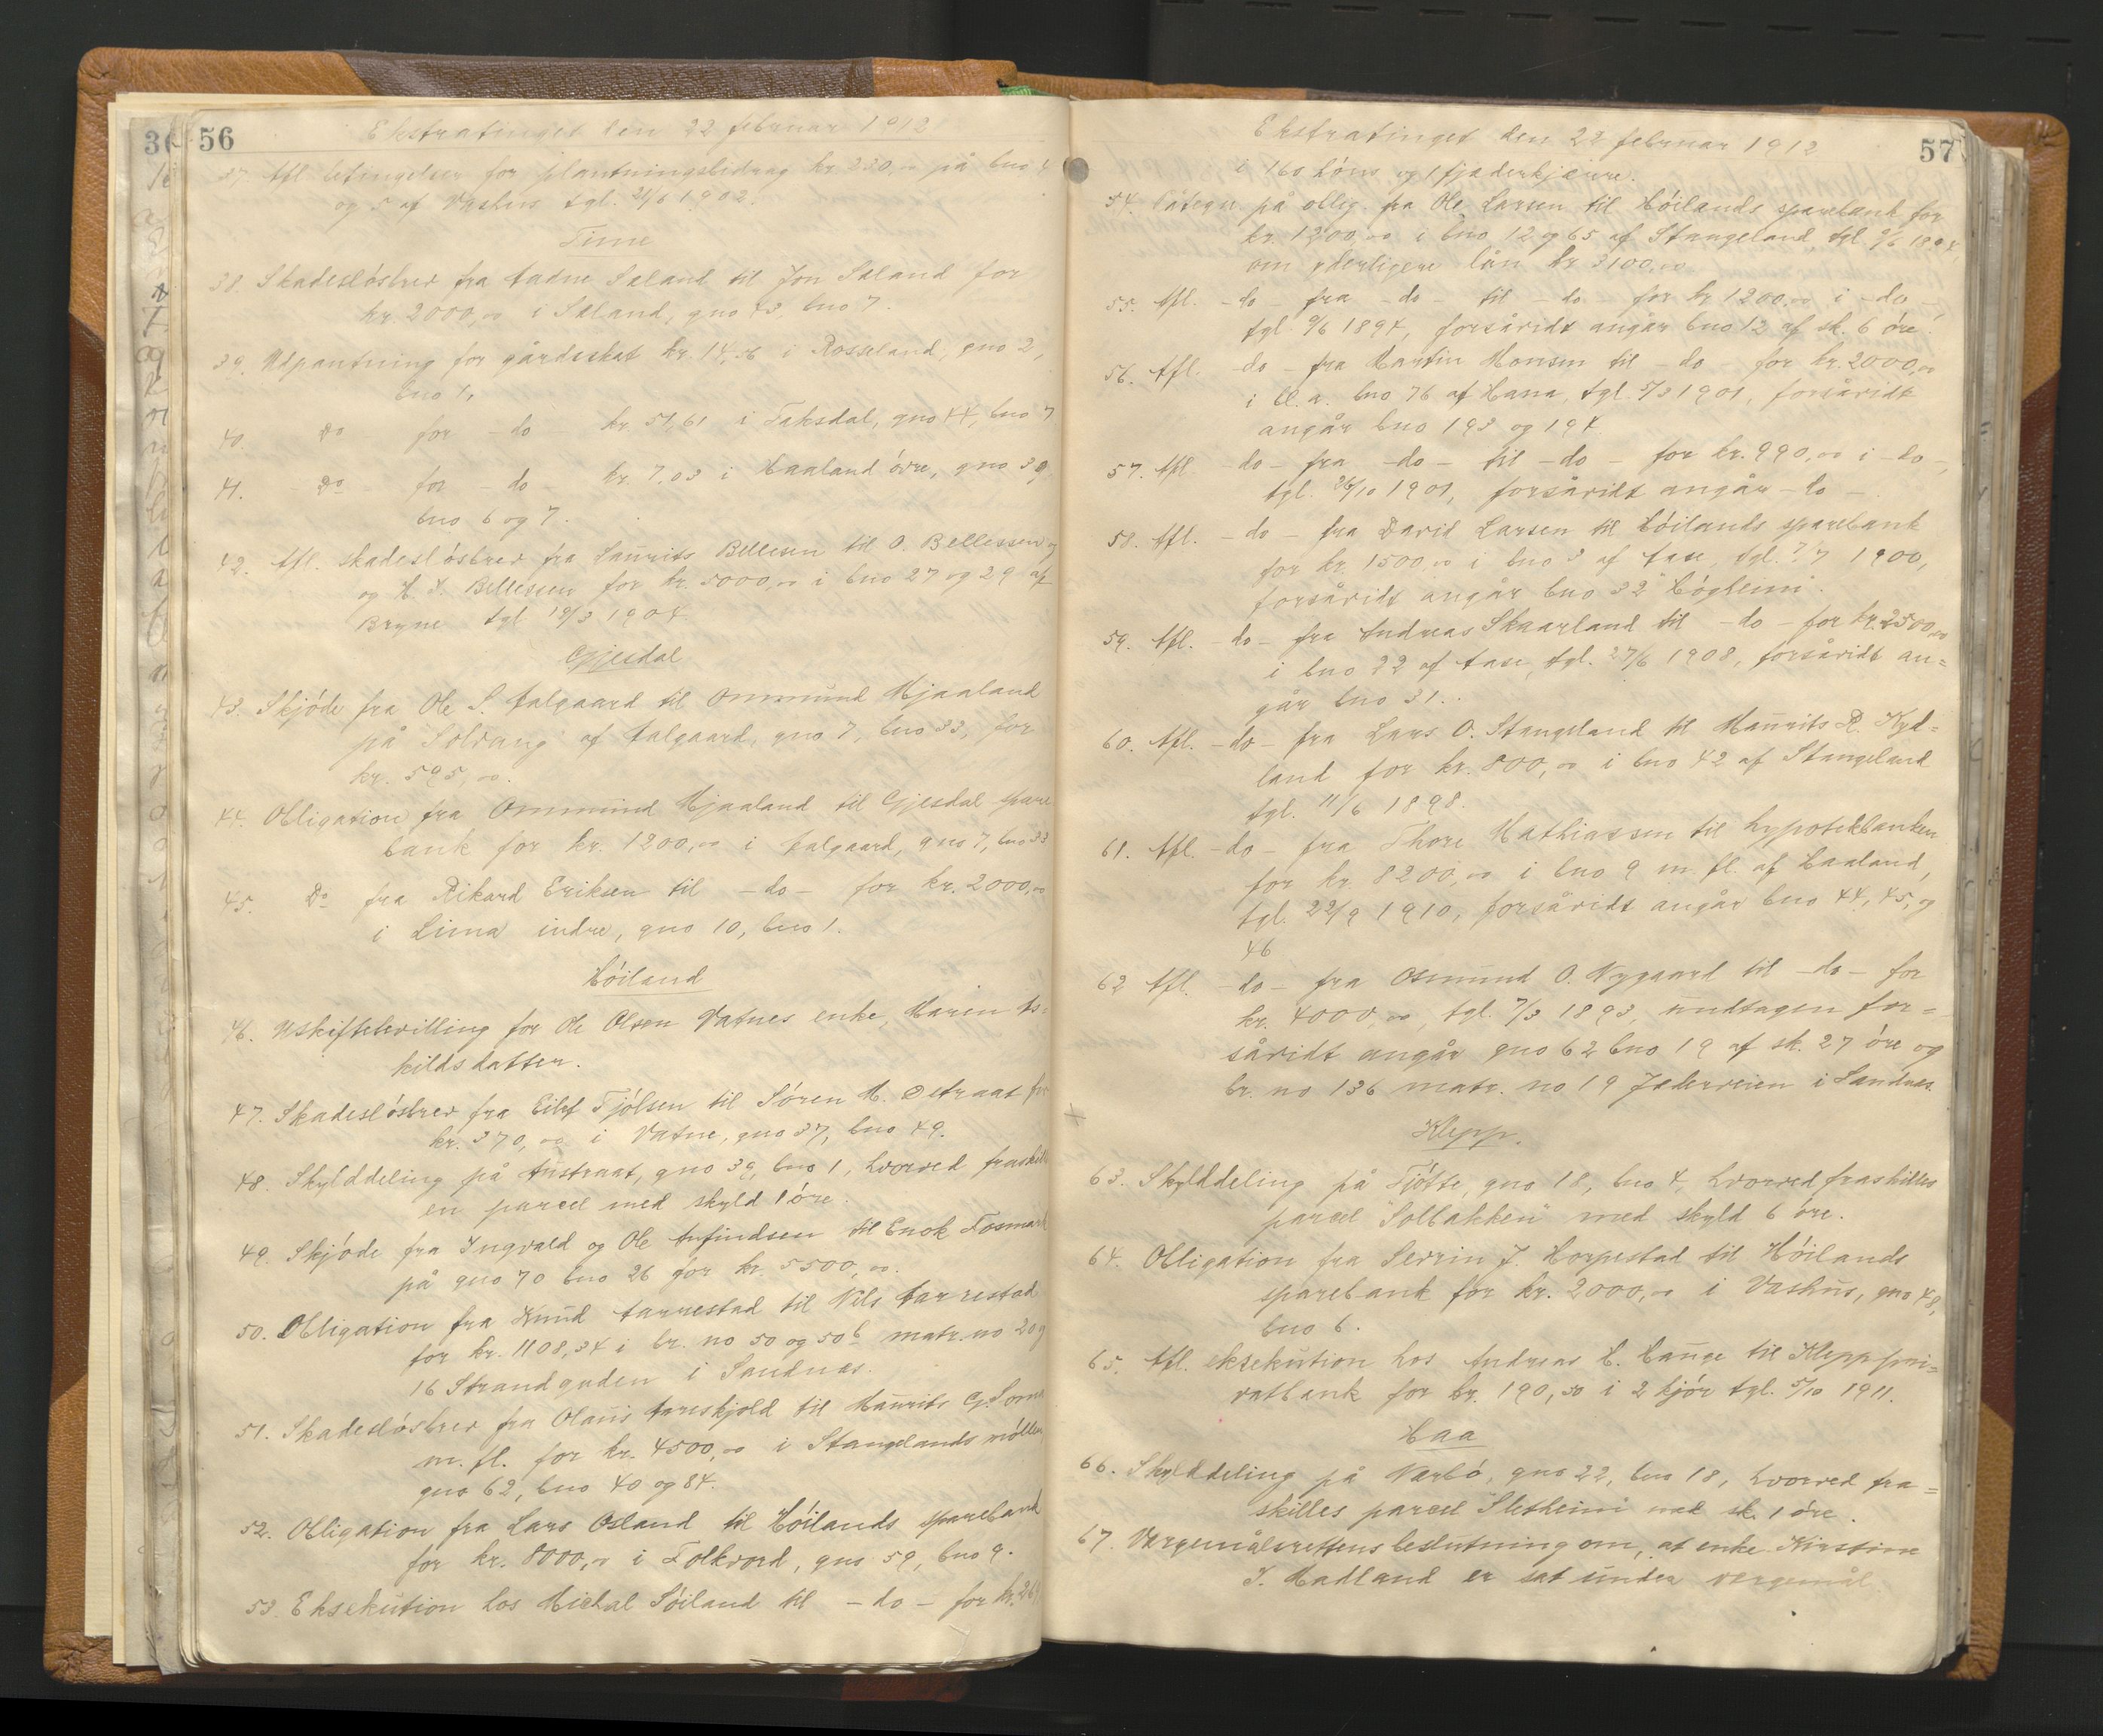 56
Ekstratinget den 22 februar 1912
37. Afl. betingelser for plantningsbidrag kr. 230,00 på bno 4
og 5 af Vashus tgl. 21/6 1902.
Time
38. Skadesløsbrev fra Aadne Sæland til Jon Sæland for
kr. 2000,00 i Sæland, gno 43, bno 7.
39. Udpantning for gårdsskat kr. 14,36 i Rosseland, gno 2,
bno 1,
40. Do for -do- kr. 51,61 i Taksdal, gno 44, bno 7
41. Do for -do- kr. 7,03 i Haaland øvre, gno 39,
bno 6 og 7.
42. Afl. skadesløsbrev fra Laurits Bellesen til O. Bellessen og
og H. J. Bellessen for kr. 5000,00 i bno 27 og 29 af
Bryne tgl 19/3 1904.
Gjesdal
43. Skjøde fra Ole S. Aalgaard til Ommund Mjaaland
på "Solvang" af Aalgaard, gno 7, bno 33, for
kr. 595,00.
44. Obligation fra Ommund Mjaaland til Gjesdal spare
bank for kr. 1200,00 i Aalgaard, gno 7, bno 33
45. Do fra Rikard Eriksen til -do- for kr. 2000,00
i Lima indre, gno 10, bno 1.
Høiland
46. Uskiftebevilling for Ole Olsen Vatnes enke, Maren As-
kildsdatter.
47. Skadesløsbrev fra Eilef Tjølsen til Søren M. Østraat for
kr. 370,00 i Vatne, gno 37, bno 49.
48. Skylddeling på Austraat, gno 39, bno 1, hvorved fraskilles
en parcel med skyld 1 øre.
49. Skjøde fra Ingvald og Ole Anfindsen til Enok Fosmark
på gno 70 bno 26 for kr. 5500,00.
50. Obligation fra Knud Aarrestad til Nils Aarrestad
for kr. 1108,34 i br. no 50 og 50b matr. no 20 og
16 Strandgaden i Sandnes.
51. Skadesløsbrev fra Olaus Aareskjold til Maurits G. Somme
m. fl. for kr. 4500,00 i Stangelands møller,
gno 62, bno 40 og 84.
52. Obligation fra Lars Osland til Høilands sparebank
for kr. 8000,00 i Folkvord, gno 59, bno 9.
53. Eksekution hos Michal Søiland til -do- for kr.
57
Ekstratinget den 22 februar 1912
i 160 høns og 1 fjæderkjærre.
54. Påtegn. på oblig. fra Ole Larsen til Høilands sparebank for
kr. 1200,00 i bno 12 og 65 af Stangeland, tgl. 9/6 1894,
om yderligere lån kr 3100,00
55. Afl. -do- fra -do- til -do- for kr 1200,00 i -do-
tgl. 9/6 1894, forsåvidt angår bno 12 af sk. 6 øre.
56. Afl. -do- fra Martin Monsen til -do- for kr. 2000,00
i bl. a. bno 76 af Hana, tgl. 5/3 1901, forsåvidt
angår bno 193 og 194.
57. Afl -do- fra -do- til -do- for kr. 990,00 i -do-,
tgl. 26/10 1901, forsåvidt angår -do-.
58. Afl. -do- fra David Larsen til Høilands sparebank
for kr. 1500,00 i bno 3 af Aase, tgl. 7/7 1900,
forsåvidt angår bno 32 "Høgheim".
59. Afl. -do- fra Andreas Skaarland til -do- for kr. 2500,00
i bno 22 af Aase, tgl. 27/6 1908, forsåvidt an-
går bno 31.
60. Afl. -do- fra Lars O. Stangeland til Maurits R. Kyd-
land for kr. 800,00 i bno 42 af Stangeland
tgl. 11/6 1898.
61. Afl. -do- fra Thore Mathiassen til hypotekbanken
for kr. 8200,00 i bno 9 m. fl. af Haaland,
tgl. 22/9 1910, forsåvidt angår bno 44, 45, og
46
62 Afl. -do- fra Osmund O. Nygaard til -do- for
kr. 4000,00, tgl. 7/3 1893, undtagen for-
såvidt angår gno 62 bno 19 af sk. 27 øre og
br. no 136 matr. no 19 Jæderveien i Sandnes.
Klepp.
63. Skylddeling på Tjøtte, gno 18, bno 4, hvorved fraskilles
parcel "Solbakken" med skyld 6 øre.
64. Obligation fra Sevrin J. Horpestad til Høilands
sparebank for kr. 2000,00 i Vashus, gno 48,
bno 6.
65. Afl. eksekution hos Andreas H. Hauge til Klepp pri-
vatbank for kr. 190,50 i 2 kjør tgl. 5/10 1911.
Haa
66. Skylddeling på Narbø, gno 22, bno 18, hvorved fra-
skilles parcel "Sletheim" med sk. 1 øre.
67. Vergemålsrettens beslutning om, at enke Kirstine
J. Madland er sat under vergemål.